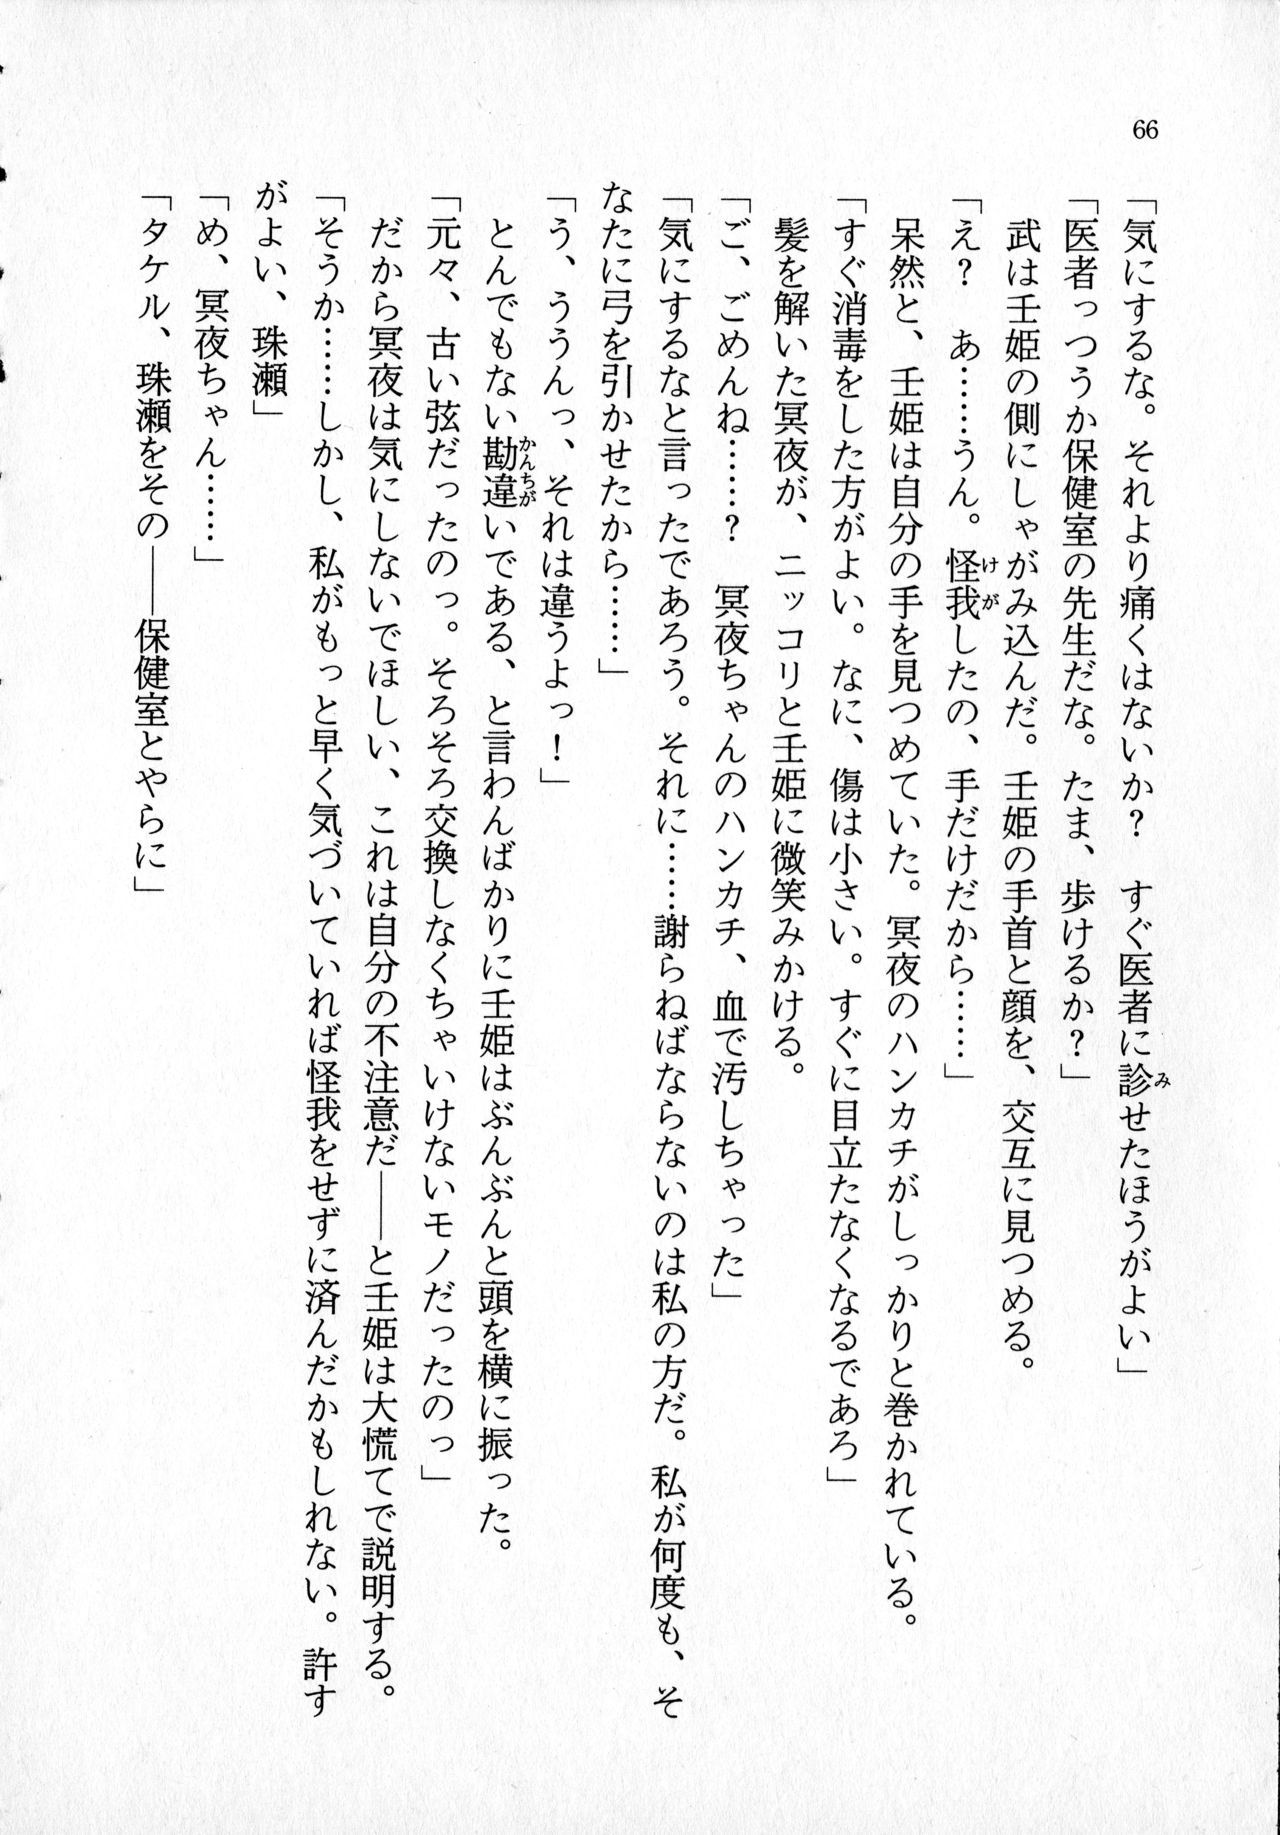 66
「気にするな。それより痛くはないか？　すぐ医者に診せたほうがよい」
「医者っつうか保健室の先生だな。たま、歩けるか？」
　武は壬姫の側にしゃがみ込んだ。壬姫の手首と顔を、交互に見つめる。
「え？　あ……うん。怪我したの、手だけだから……」
　呆然と、壬姫は自分の手を見つめていた。冥夜のハンカチがしっかりと巻かれている。
「すぐ消毒をした方がよい。なに、傷は小さい。すぐに目立たなくなるであろ」
　髪を解いた冥夜が、ニッコリと壬姫に微笑みかける。
「ご、ごめんね……？　冥夜ちゃんのハンカチ、血で汚しちゃった」
「気にするなと言ったであろう。それに……謝らねばならないのは私の方だ。私が何度も、そ
なたに弓を引かせたから……」
「う、ううんっ、それは違うよっ！」
　とんでもない勘違いである、と言わんばかりに壬姫はぶんぶんと頭を横に振った。
「元々、古い弦だったのっ。そろそろ交換しなくちゃいけないモノだったのっ」
　だから冥夜は気にしないでほしい、これは自分の不注意だ――と壬姫は大慌てで説明する。
「そうか……しかし、私がもっと早く気づいていれば怪我をせずに済んだかもしれない。許す
がよい、珠瀬」
「め、冥夜ちゃん……」
「タケル、珠瀬をその――保健室とやらに」